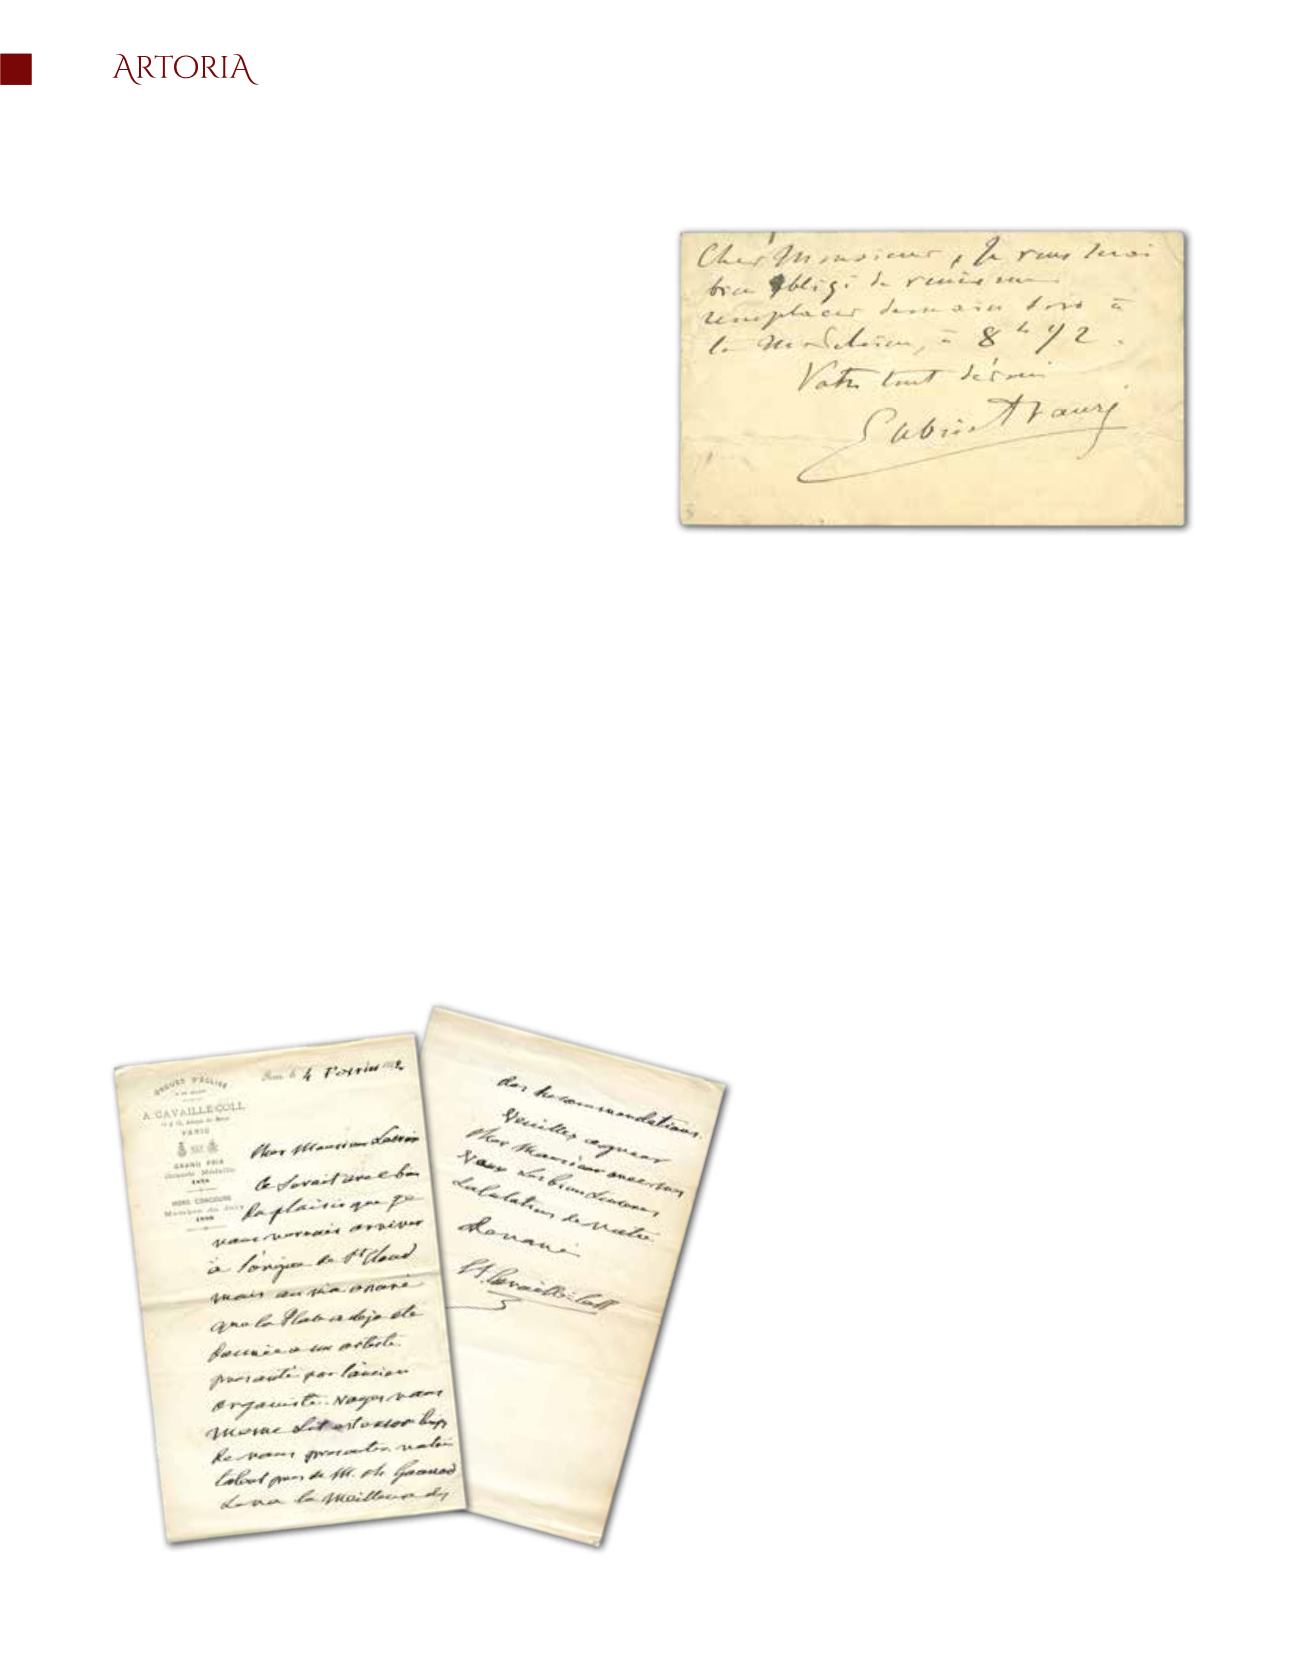 ARTORIA
Cher Monsieur, Je vous serai
bien obligé de venir me
remplacer demain soir à
la Madeleine, à 8 h 1/2.
Votre tout dévoué
Gabriel Fauré
ORGUES D'ÉGLISE
A. CAVAILLÉ-COLL
PARIS
GRAND PRIX
Grande Médaille
1878
HORS CONCOURS
Membre du Jury
4 Février
Cher Monsieur
Ce serait avec bien
du plaisir que je
vous verrais arriver
à l'orgue de St Cloud
mais on m'a assuré
que la Place a déjà été
donnée a un artiste
présenté par l'ancien
organiste. Voyez vous
meme
de vous presenter votre
talent près de M. Ch Gounod
sera la meilleure des
des Recommandations.
Veuillez agréer
cher Monsieur avec mes
salutations de votre
Dévoué
A. Cavaillé-Coll